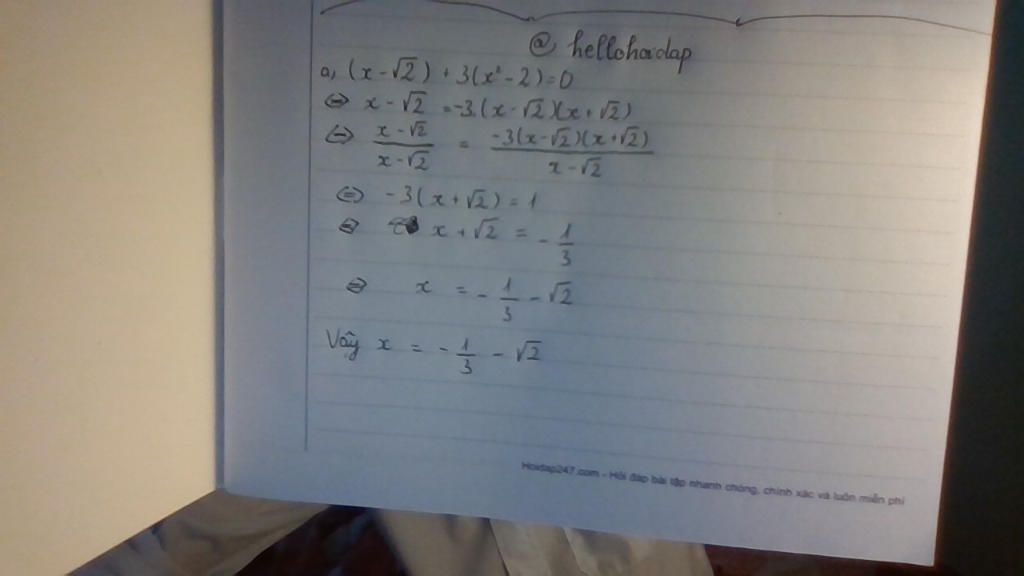 @ hellohoidap
a, (x-√2) + 3(x²-2)=0
⇔ x - √2 = -3.(x-√2)(x+√2)
⇔ x-√2 / x-√2 = -3(x-√2)(x+√2) / x-√2
⇔ -3(x+√2) = 1
⇔ x+√2 = -1/3
⇔ x = -1/3 - √2
Vậy x = -1/3 - √2
Hoidap247.com - Hỏi đáp bài tập nhanh chóng, chính xác và luôn miễn phí